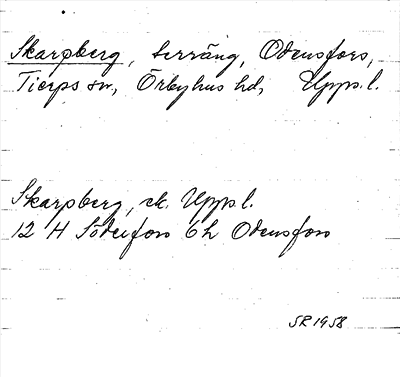 Skarpberg, terräng, Odensfors,
Tierps sn, Örbyhus hd, Upps.l.
Skarpberg, ek. Upps l.
12 H Söderfors 6h Odensfors
SR 1958